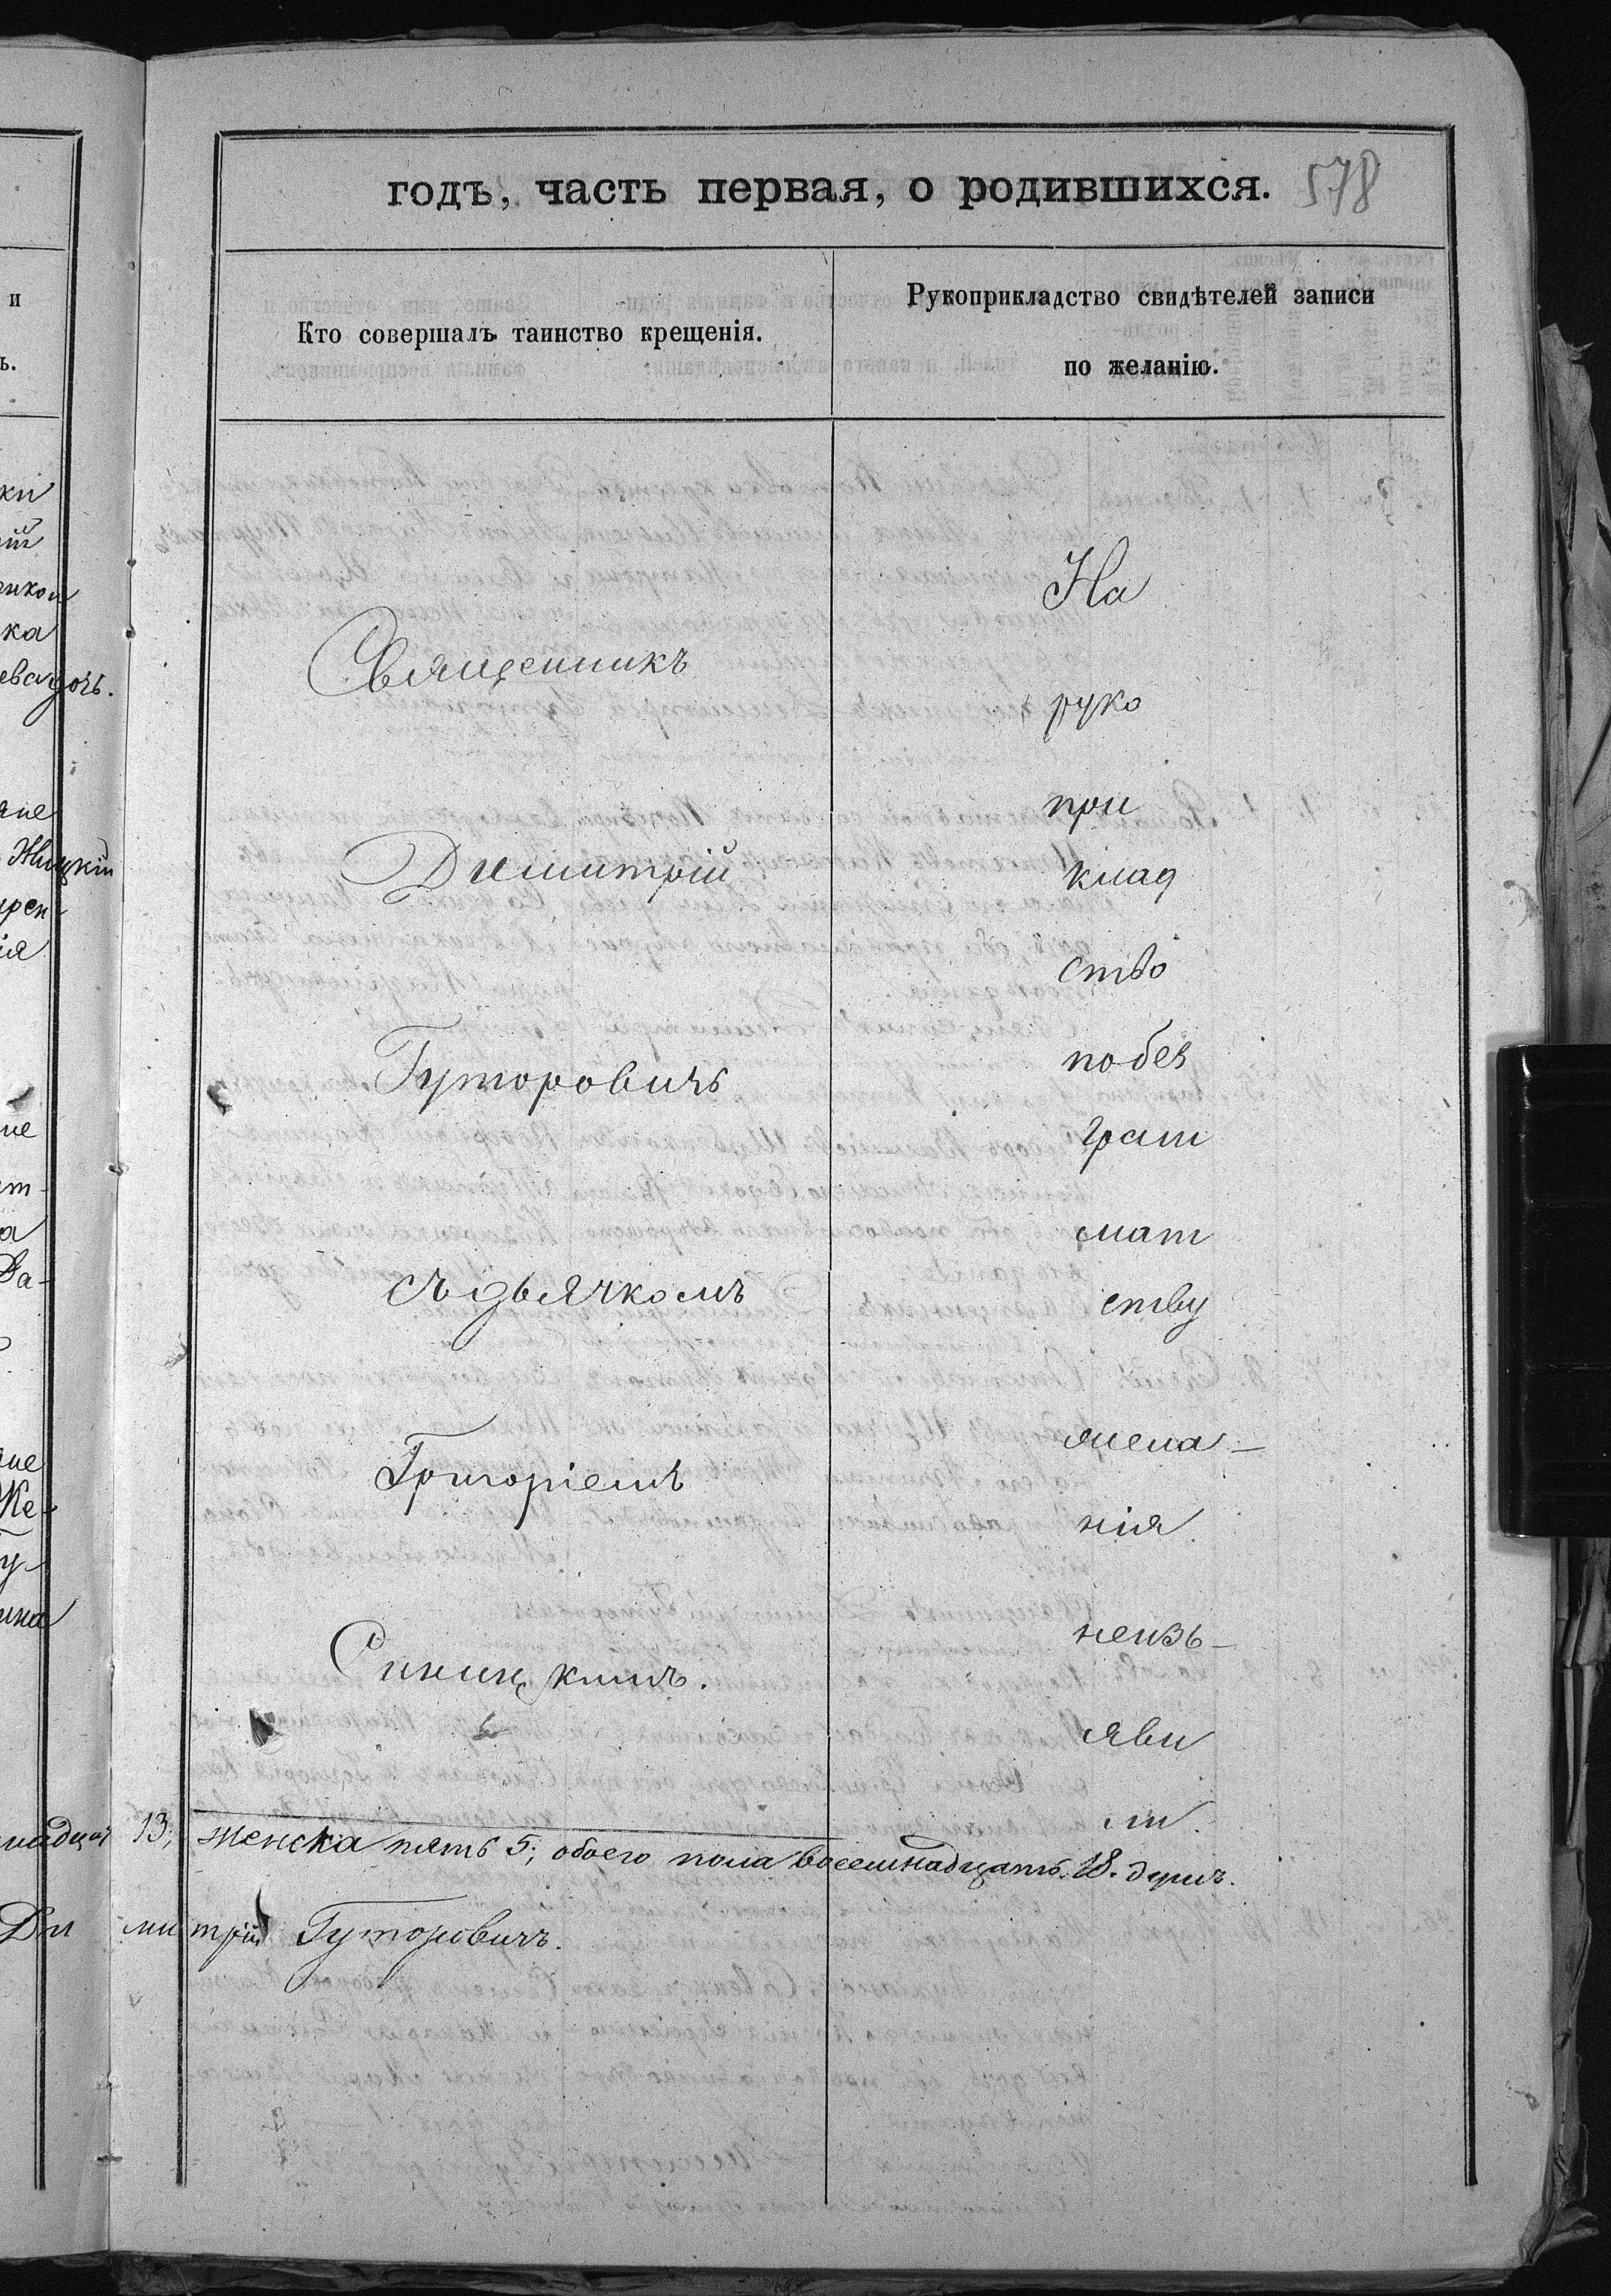 годъ, часть первая, о родившихся. 578
Кто совершалъ таинство крещенія.
Рукоприкладство свидѣтелей записи
по желанію.
Священникъ
Димитрій
Гуторовичъ
съ дьячкомъ
Григоріемъ
Синицкимъ.
На
руко
при
клад
ство
по без
грам
мат
ству
жела-
нія
неизъ-
яви
ли.
13; женска пять 5; обоего пола восемнадцать 18. душъ.
Димитрій Гуторовичъ.